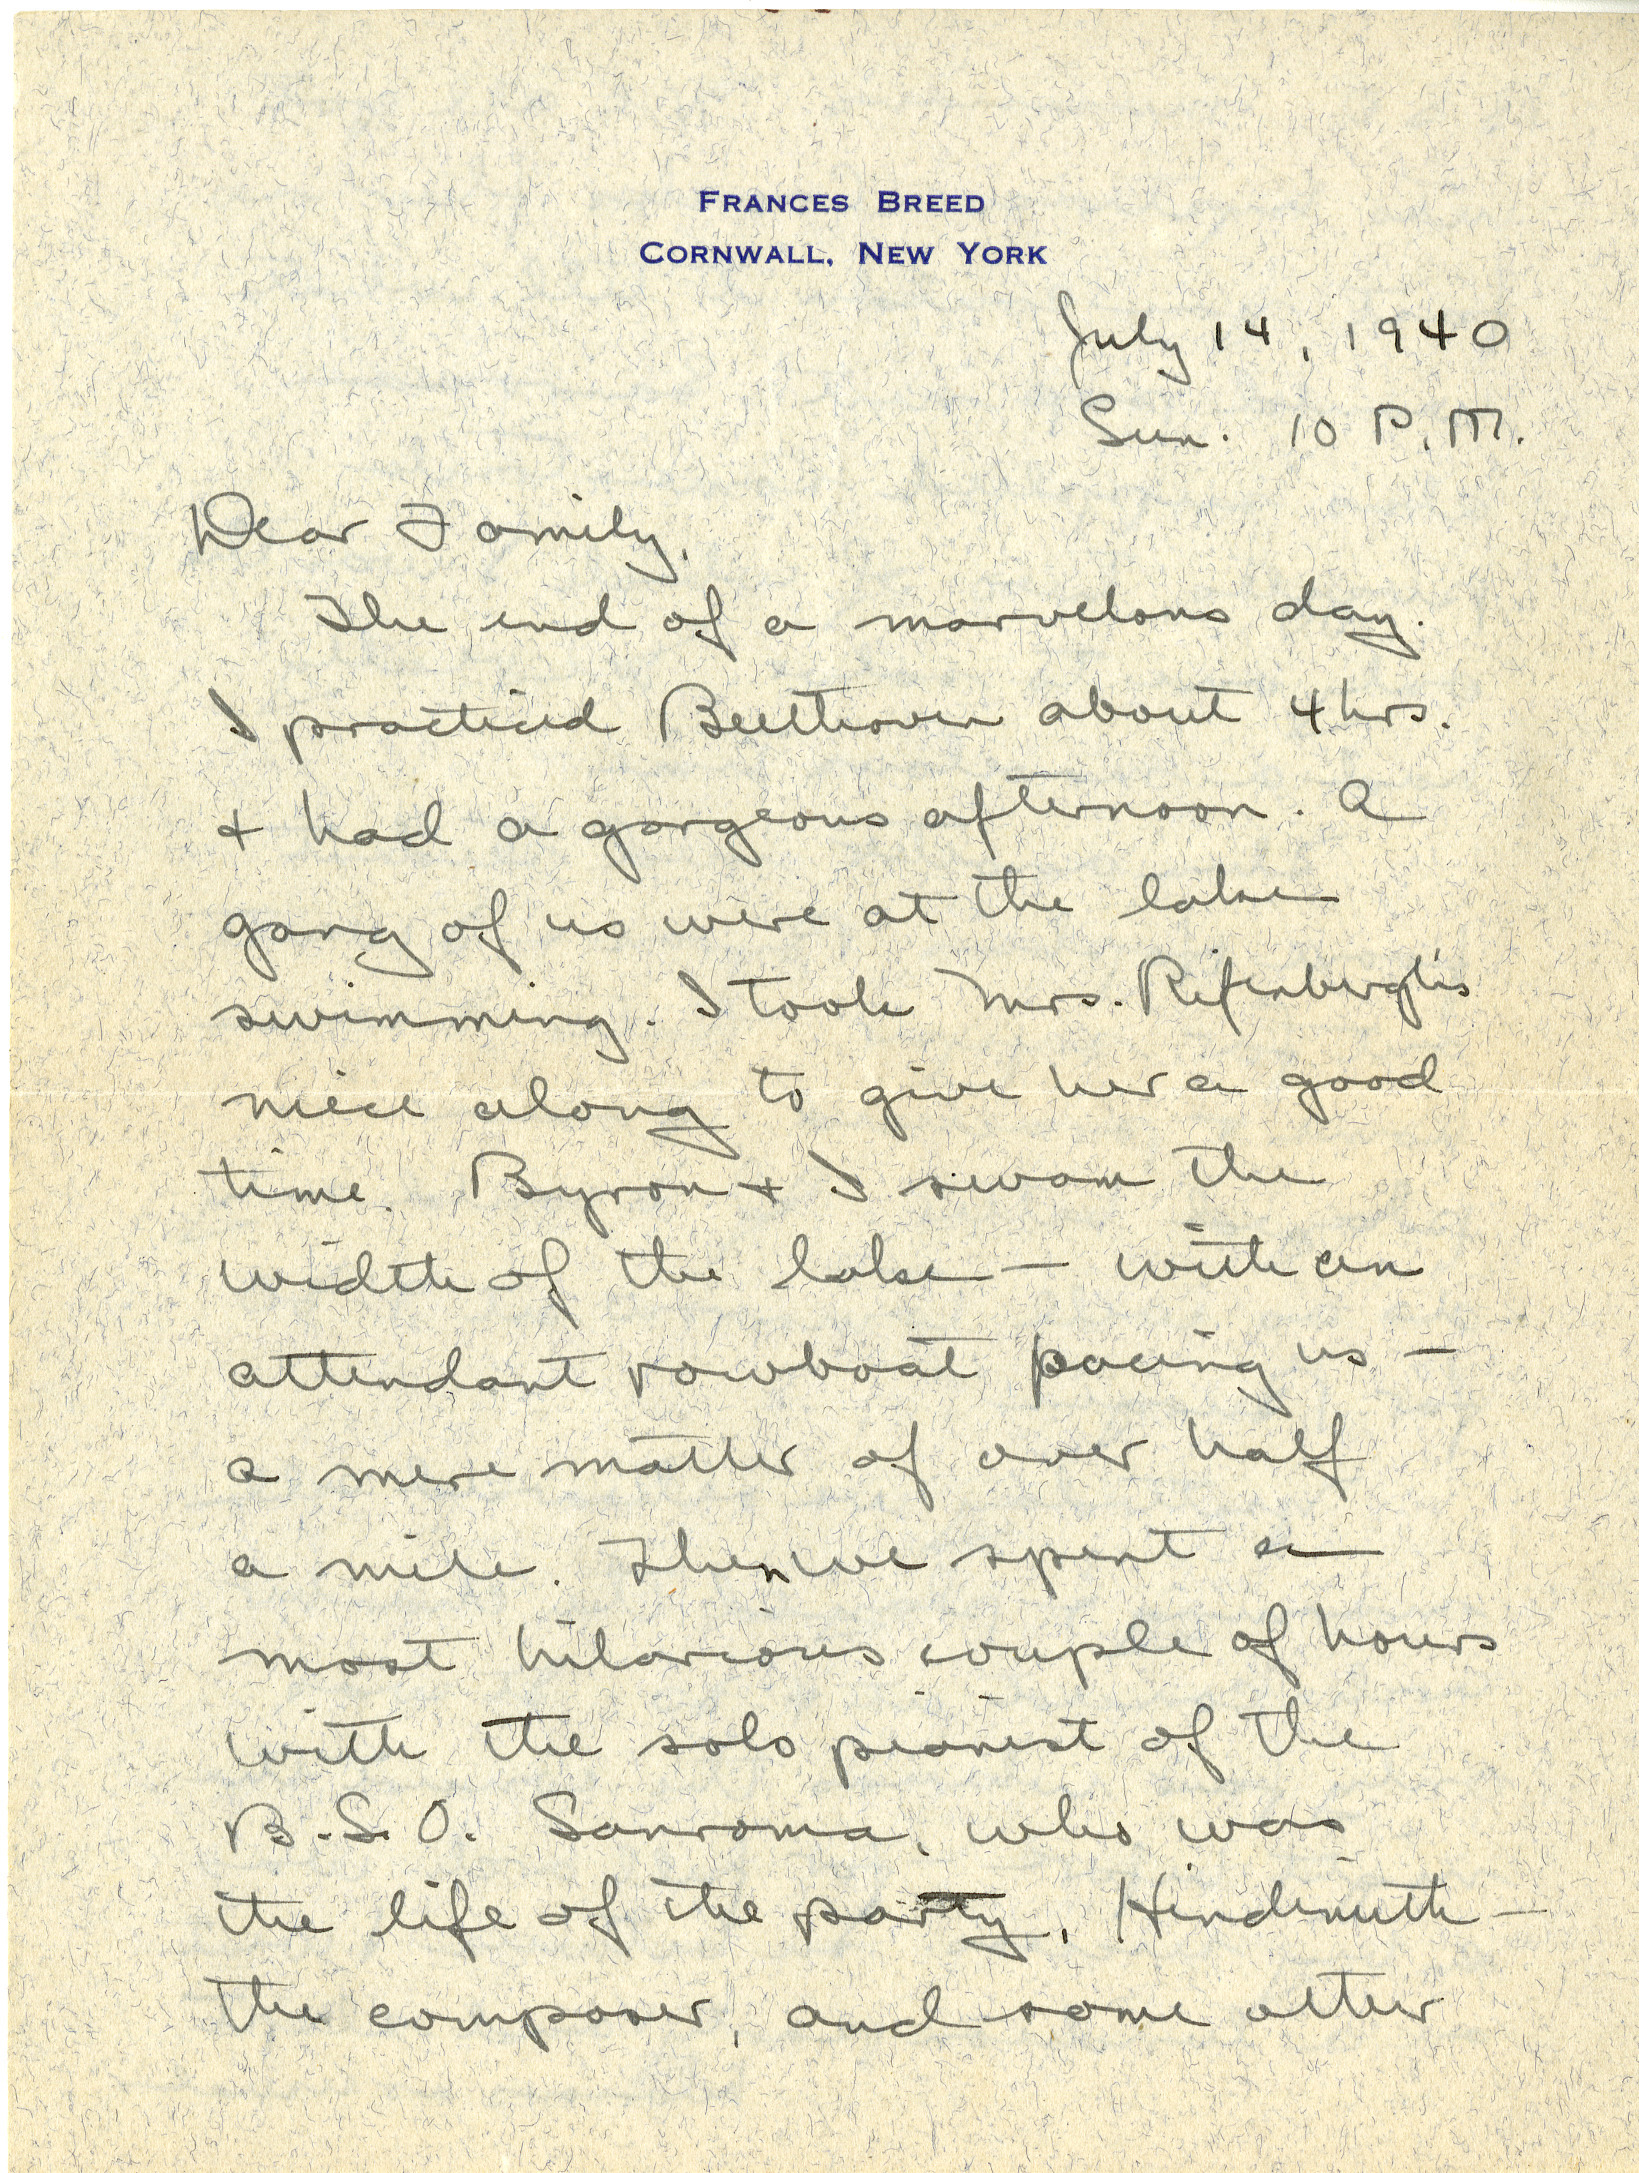 FRANCES BREED
CORNWALL, NEW YORK
July 14, 1940
Sun. 10 P.M.
Dear Family,
The end of a marvelous day.
I practiced Beethoven about 4 hrs.
+ had a gorgeous afternoon. A
gang of us were at the lake
swimming. I took Mrs. Rifenbergh's
niece along to give her a good
time. Byron + I swam the
width of the lake — with an
attendant rowboat pacing us —
a mere matter of over half
a mile. Then we spent a
most hilarious couple of hours
with the solo pianist of the
B.S.O. Sanroma, who was
the life of the party, Hindemith —
the composer, and some other